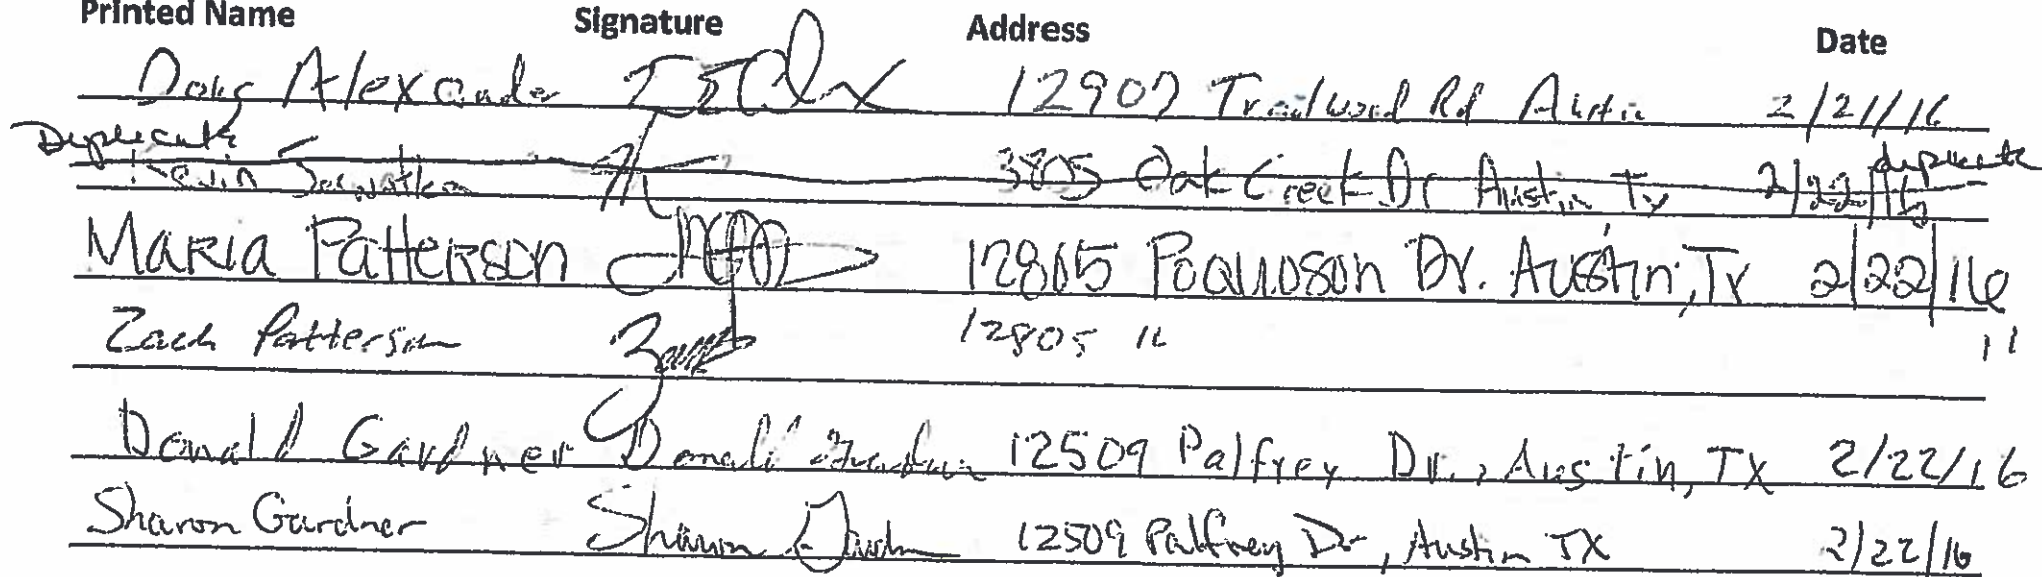 Printed Name Signature Address Date
Doug Alexander 12907 Trailwood Rd Austin 2/21/16
Duplicate
Kevin 3805 Oak Creek Dr Austin Tx 2/22/16 duplicate
Maria Patterson 12805 Poquoson Dr. Austin, Tx 2/22/16
Zach Patterson 12805 " "
Donald Gardner Donald Gardner 12509 Palfrey Dr., Austin, TX 2/22/16
Sharon Gardner Sharon Gardner 12509 Palfrey Dr, Austin TX 2/22/16